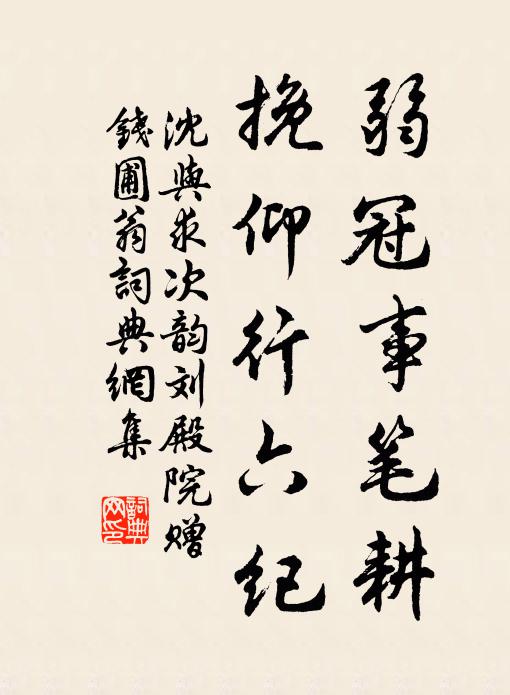 弱冠事笔耕
挽仰行六纪
沈與求次韵刘殿院赠
錢圃翁詞典網集
詞典
网印